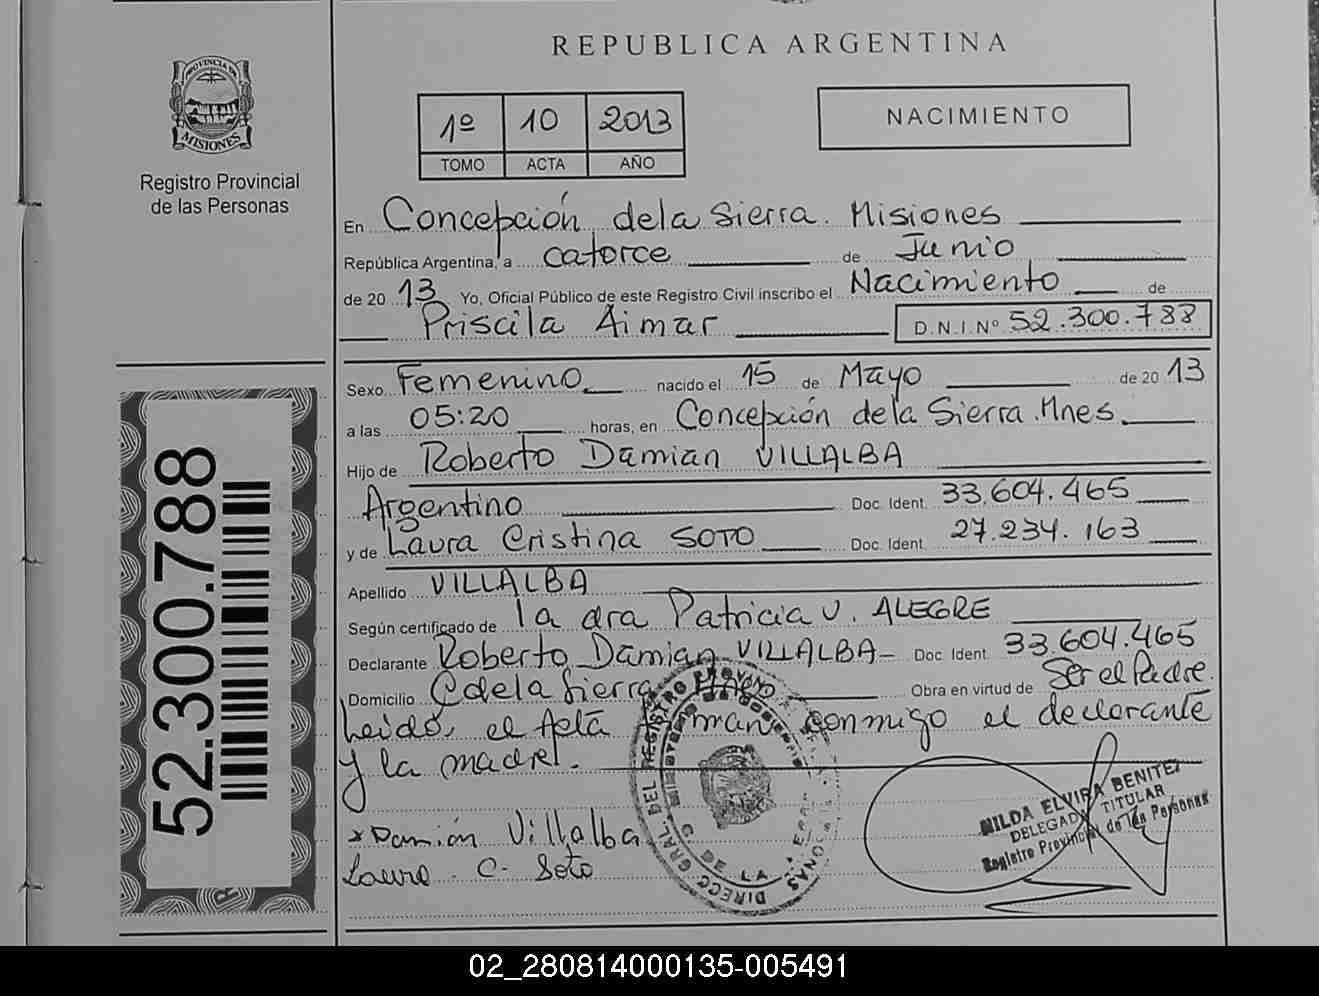 REPUBLICA ARGENTINA
PROVINCIA DE
MISIONES
Registro Provincial
de las Personas
1º 10 2013
TOMO ACTA AÑO
NACIMIENTO
En Concepción dela Sierra. Misiones
República Argentina, a catorce de Junio
de 2013 Yo, Oficial Público de este Registro Civil inscribo el Nacimiento de
Priscila Aimar D.N.I.Nº 52.300.788
Sexo Femenino nacido el 15 de Mayo de 2013
a las 05:20 horas, en Concepción dela Sierra.Mnes.
Hijo de Roberto Damian VILLALBA
Argentino Doc. Ident. 33.604.465
y de Laura Cristina SOTO Doc. Ident. 27.234.163
Apellido VILLALBA
Según certificado de la dra Patricia V. ALEGRE
Declarante Roberto Damian VILLALBA Doc. Ident. 33.604.465
Domicilio C dela Sierra Obra en virtud de Ser el Padre.
Leido, el Acta firman conmigo el declarante
y la madre.
x Damián Villalba
Laura . C. Soto
DIRECC GRAL. DEL REGISTRO PROV
MINISTERIO DE GOBIERNO
C DE LA SIERRA
MILDA ELVIRA BENITEZ
DELEGADA TITULAR
Registro Provincial de las Personas
52.300.788
02_280814000135-005491